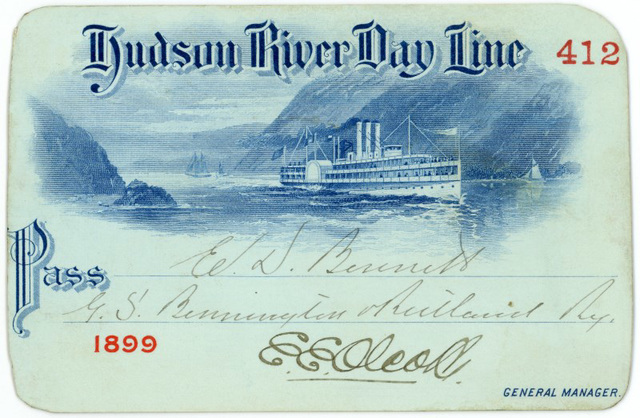 Hudson River Day Line 412
Pass E. D. Bennett
G. S. Bennington & Rutland Ry.
1899 E. E. Olcott.
GENERAL MANAGER.